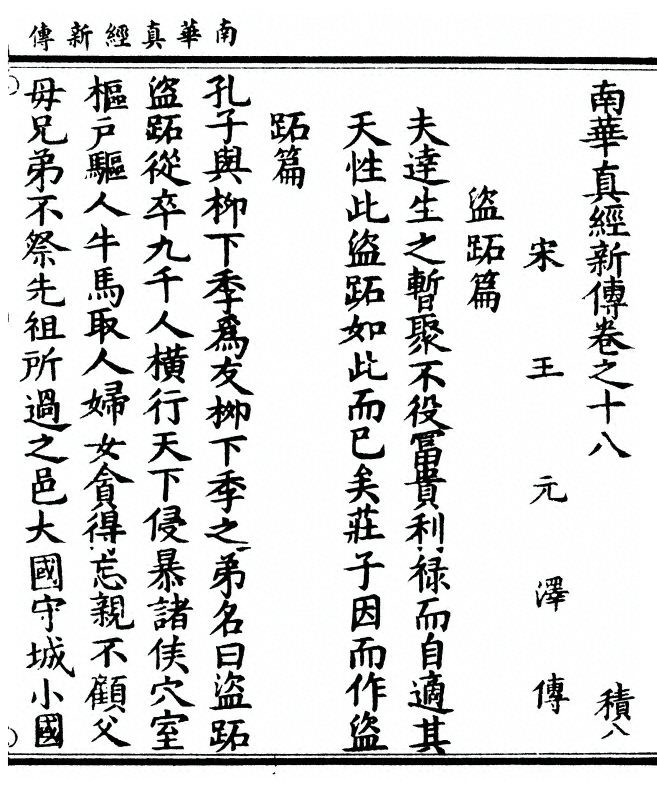 南華真經新傳
南華真經新傳卷之十八
積八
宋王元澤傳
盜跖篇
夫達生之暫聚不役富貴利祿而自適其
天性此盜跖如此而已矣莊子因而作盜
跖篇
孔子與柳下季爲友柳下季之弟名曰盜跖
盜跖從卒九千人橫行天下侵暴諸侯穴室
樞戶驅人牛馬取人婦女貪得忘親不顧父
母兄弟不祭先祖所過之邑大國守城小國